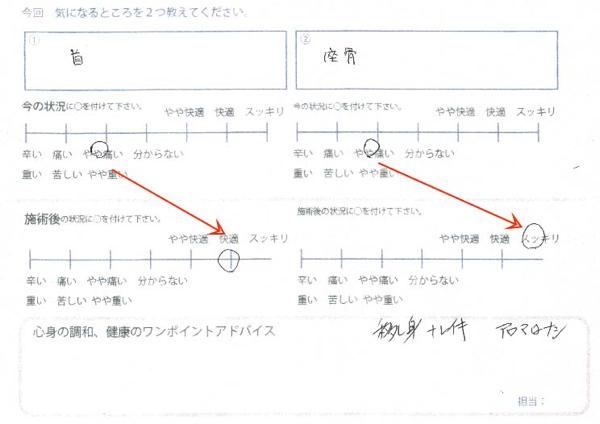 今回 気になるところを2つ教えてください。
① ②
首 座骨
今の状況に○を付けて下さい。 やや快適 快適 スッキリ
今の状況に○を付けて下さい。 やや快適 快適 スッキリ
辛い 痛い やや痛い 分からない
辛い 痛い やや痛い 分からない
重い 苦しい やや重い
重い 苦しい やや重い
施術後の状況に○を付けて下さい。
施術後の状況に○を付けて下さい。
やや快適 快適 スッキリ
やや快適 快適 スッキリ
辛い 痛い やや痛い 分からない
辛い 痛い やや痛い 分からない
重い 苦しい やや重い
重い 苦しい やや重い
心身の調和、健康のワンポイントアドバイス
担当：